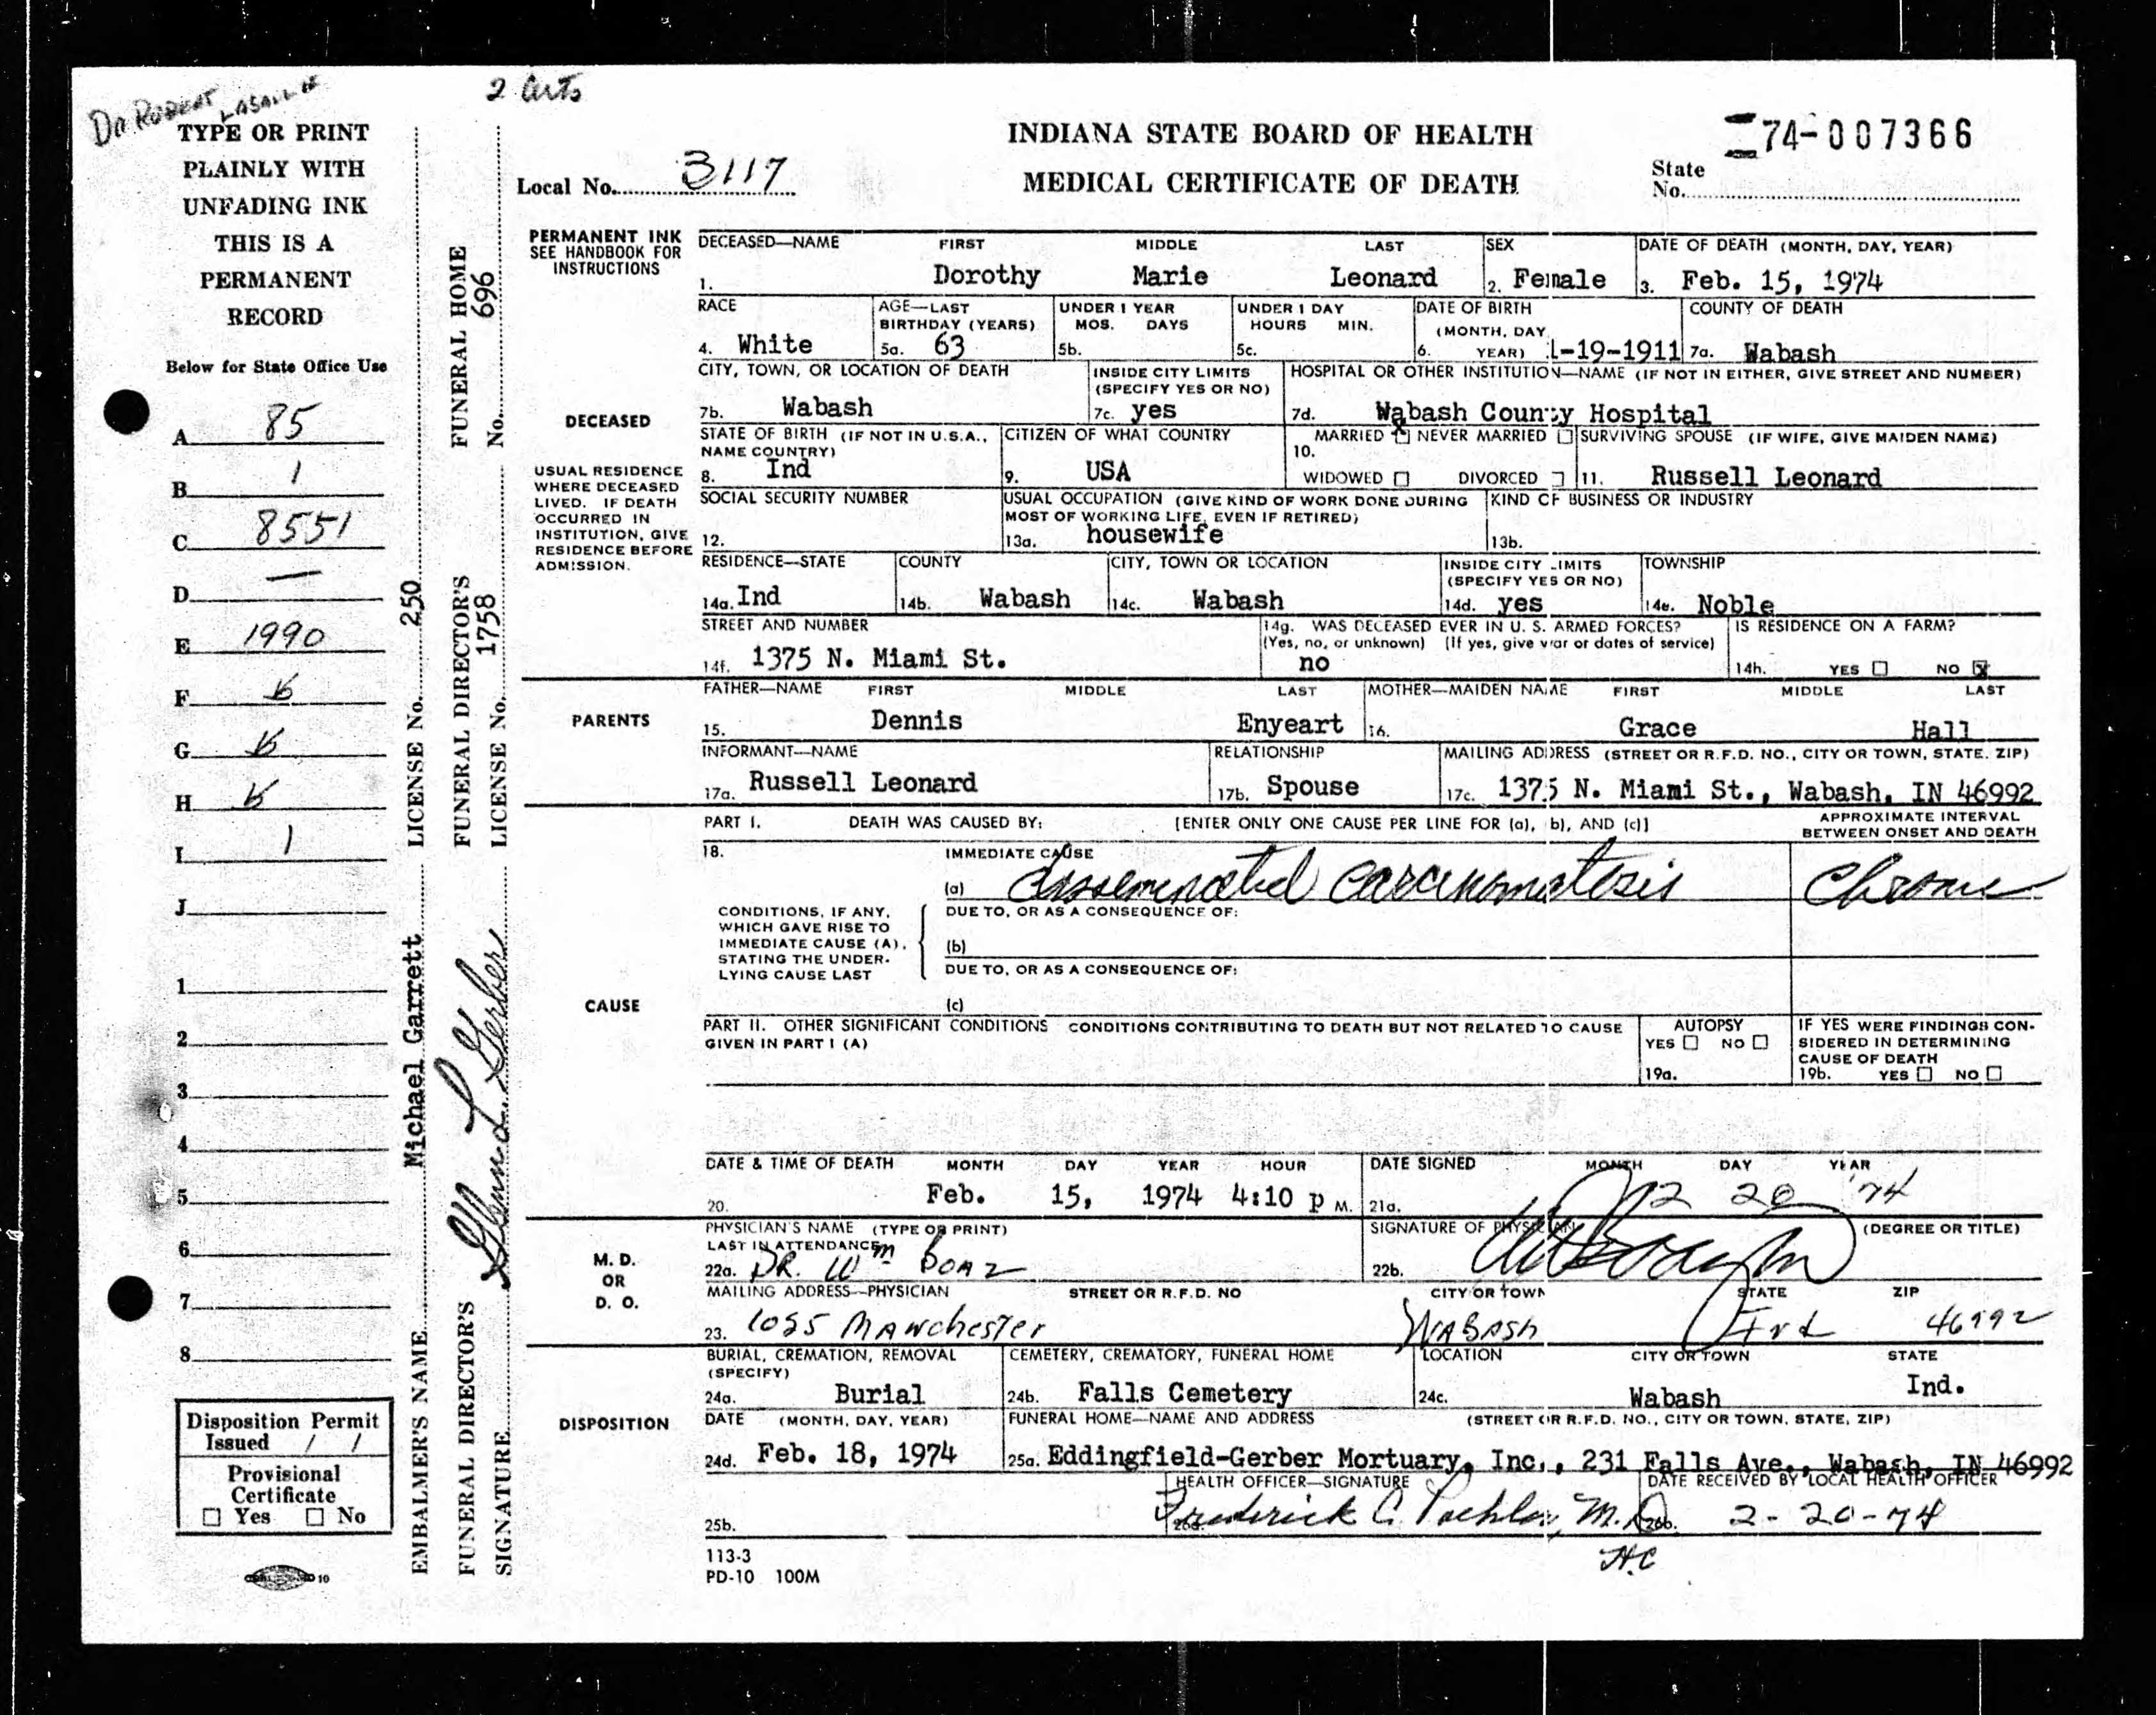 2 Certs
Dr Robert LaSalle
TYPE OR PRINT
PLAINLY WITH
UNFADING INK
THIS IS A
PERMANENT
RECORD
Below for State Office Use
A 85
B 1
C 8551
D —
E 1990
F
G
H
I 1
J
1
2
3
4
5
6
7
8
Disposition Permit
Issued / /
Provisional
Certificate
☐ Yes ☐ No
10
EMBALMER'S NAME Michael Garrett LICENSE No. 250
FUNERAL DIRECTOR'S FUNERAL DIRECTOR'S FUNERAL HOME
SIGNATURE Glenn L. Gerber LICENSE No. 1758 No. 696
INDIANA STATE BOARD OF HEALTH
MEDICAL CERTIFICATE OF DEATH
Local No. 3117
74-007366
State
No.
PERMANENT INK
SEE HANDBOOK FOR
INSTRUCTIONS
DECEASED
USUAL RESIDENCE
WHERE DECEASED
LIVED. IF DEATH
OCCURRED IN
INSTITUTION, GIVE
RESIDENCE BEFORE
ADMISSION.
DECEASED—NAME FIRST MIDDLE LAST SEX DATE OF DEATH (MONTH, DAY, YEAR)
1. Dorothy Marie Leonard 2. Female 3. Feb. 15, 1974
RACE AGE—LAST UNDER 1 YEAR UNDER 1 DAY DATE OF BIRTH COUNTY OF DEATH
BIRTHDAY (YEARS) MOS. DAYS HOURS MIN. (MONTH, DAY,
4. White 5a. 63 5b. 5c. 6. YEAR) 1-19-1911 7a. Wabash
CITY, TOWN, OR LOCATION OF DEATH INSIDE CITY LIMITS HOSPITAL OR OTHER INSTITUTION—NAME (IF NOT IN EITHER, GIVE STREET AND NUMBER)
(SPECIFY YES OR NO)
7b. Wabash 7c. yes 7d. Wabash County Hospital
STATE OF BIRTH (IF NOT IN U.S.A., CITIZEN OF WHAT COUNTRY MARRIED ☐ NEVER MARRIED ☐ SURVIVING SPOUSE (IF WIFE, GIVE MAIDEN NAME)
NAME COUNTRY) 10.
8. Ind 9. USA WIDOWED ☐ DIVORCED ☐ 11. Russell Leonard
SOCIAL SECURITY NUMBER USUAL OCCUPATION (GIVE KIND OF WORK DONE DURING KIND OF BUSINESS OR INDUSTRY
MOST OF WORKING LIFE, EVEN IF RETIRED)
12. 13a. housewife 13b.
RESIDENCE—STATE COUNTY CITY, TOWN OR LOCATION INSIDE CITY LIMITS TOWNSHIP
(SPECIFY YES OR NO)
14a. Ind 14b. Wabash 14c. Wabash 14d. yes 14e. Noble
STREET AND NUMBER 14g. WAS DECEASED EVER IN U. S. ARMED FORCES? IS RESIDENCE ON A FARM?
(Yes, no, or unknown) (If yes, give war or dates of service)
14f. 1375 N. Miami St. no 14h. YES ☐ NO ☒
PARENTS
FATHER—NAME FIRST MIDDLE LAST MOTHER—MAIDEN NAME FIRST MIDDLE LAST
15. Dennis Enyeart 16. Grace Hall
INFORMANT—NAME RELATIONSHIP MAILING ADDRESS (STREET OR R.F.D. NO., CITY OR TOWN, STATE, ZIP)
17a. Russell Leonard 17b. Spouse 17c. 1375 N. Miami St., Wabash, IN 46992
CAUSE
PART I. DEATH WAS CAUSED BY: [ENTER ONLY ONE CAUSE PER LINE FOR (a), (b), AND (c)] APPROXIMATE INTERVAL
BETWEEN ONSET AND DEATH
18. IMMEDIATE CAUSE
(a) disseminated carcinomatosis Chronic
CONDITIONS, IF ANY,
WHICH GAVE RISE TO
IMMEDIATE CAUSE (A),
STATING THE UNDER-
LYING CAUSE LAST
DUE TO, OR AS A CONSEQUENCE OF:
(b)
DUE TO, OR AS A CONSEQUENCE OF:
(c)
PART II. OTHER SIGNIFICANT CONDITIONS CONDITIONS CONTRIBUTING TO DEATH BUT NOT RELATED TO CAUSE
GIVEN IN PART I (A)
AUTOPSY
YES ☐ NO ☐
19a.
IF YES WERE FINDINGS CON-
SIDERED IN DETERMINING
CAUSE OF DEATH
19b. YES ☐ NO ☐
DATE & TIME OF DEATH MONTH DAY YEAR HOUR DATE SIGNED MONTH DAY YEAR
20. Feb. 15, 1974 4:10 p M. 21a. 2 20 '74
M. D.
OR
D. O.
PHYSICIAN'S NAME (TYPE OR PRINT) SIGNATURE OF PHYSICIAN (DEGREE OR TITLE)
LAST IN ATTENDANCE
22a. DR. Wm Boaz 22b.
MAILING ADDRESS—PHYSICIAN STREET OR R.F.D. NO CITY OR TOWN STATE ZIP
23. 1055 Manchester Wabash Ind 46992
DISPOSITION
BURIAL, CREMATION, REMOVAL CEMETERY, CREMATORY, FUNERAL HOME LOCATION CITY OR TOWN STATE
(SPECIFY)
24a. Burial 24b. Falls Cemetery 24c. Wabash Ind.
DATE (MONTH, DAY, YEAR) FUNERAL HOME—NAME AND ADDRESS (STREET OR R.F.D. NO., CITY OR TOWN, STATE, ZIP)
24d. Feb. 18, 1974 25a. Eddingfield-Gerber Mortuary, Inc., 231 Falls Ave., Wabash, IN 46992
HEALTH OFFICER—SIGNATURE DATE RECEIVED BY LOCAL HEALTH OFFICER
25b. Frederick C. M.D. 26b. 2-20-74
113-3
PD-10 100M
HC